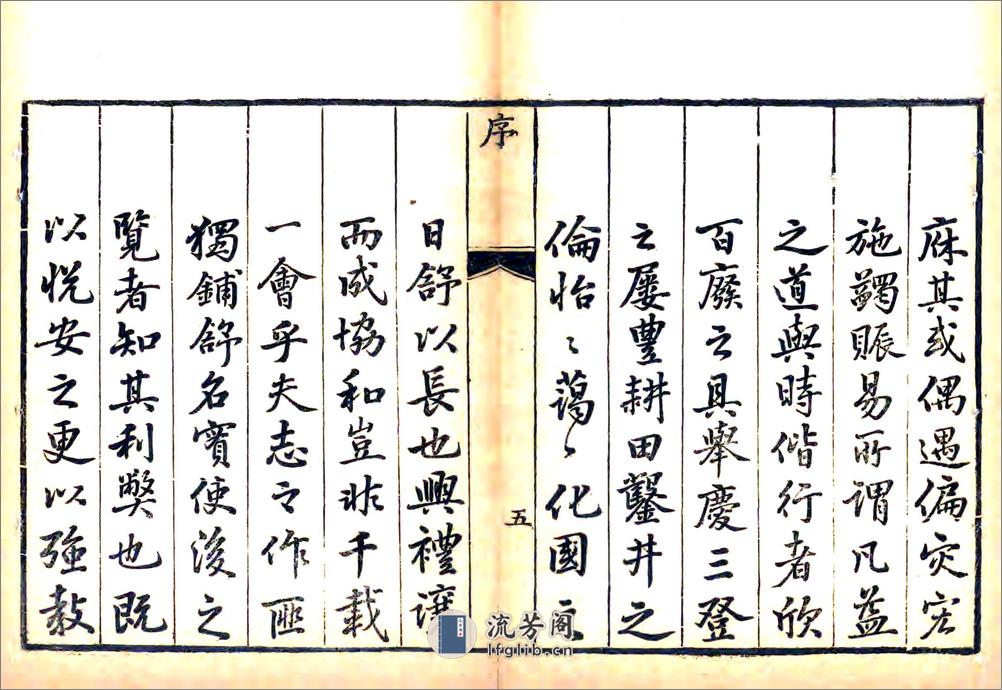 庥其或偶遇偏灾宏
施蠲賑易所謂凡益
之道與時偕行者欣
百廢之具舉慶三登
之屢豐耕田鑿井之
倫怡〻蕩〻化國之
序
五
日舒以長也興禮讓
而成協和豈非千載
一會乎夫志之作匪
獨鋪舒名實使後之
覽者知其利弊也既
以悅安之更以強教
流芳阁
lfglib.cn